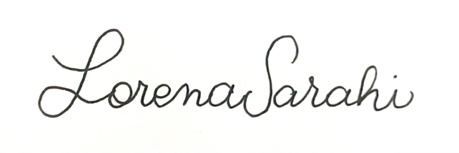 Lorena Sarahi